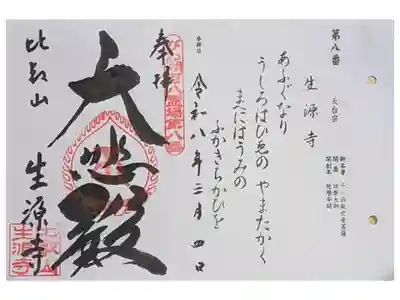 第八番
生源寺 天台宗
御本尊 十一面観世音菩薩
開基 伝教大師
開創年 延暦年間
あふぐなり
うしろはひゑの やまたかく
まへにはうみの
ふかきちかひを
令和八年三月四日
奉拝
びわ湖百八霊場第八番
大悲殿
比叡山 生源寺
比叡山
生源寺